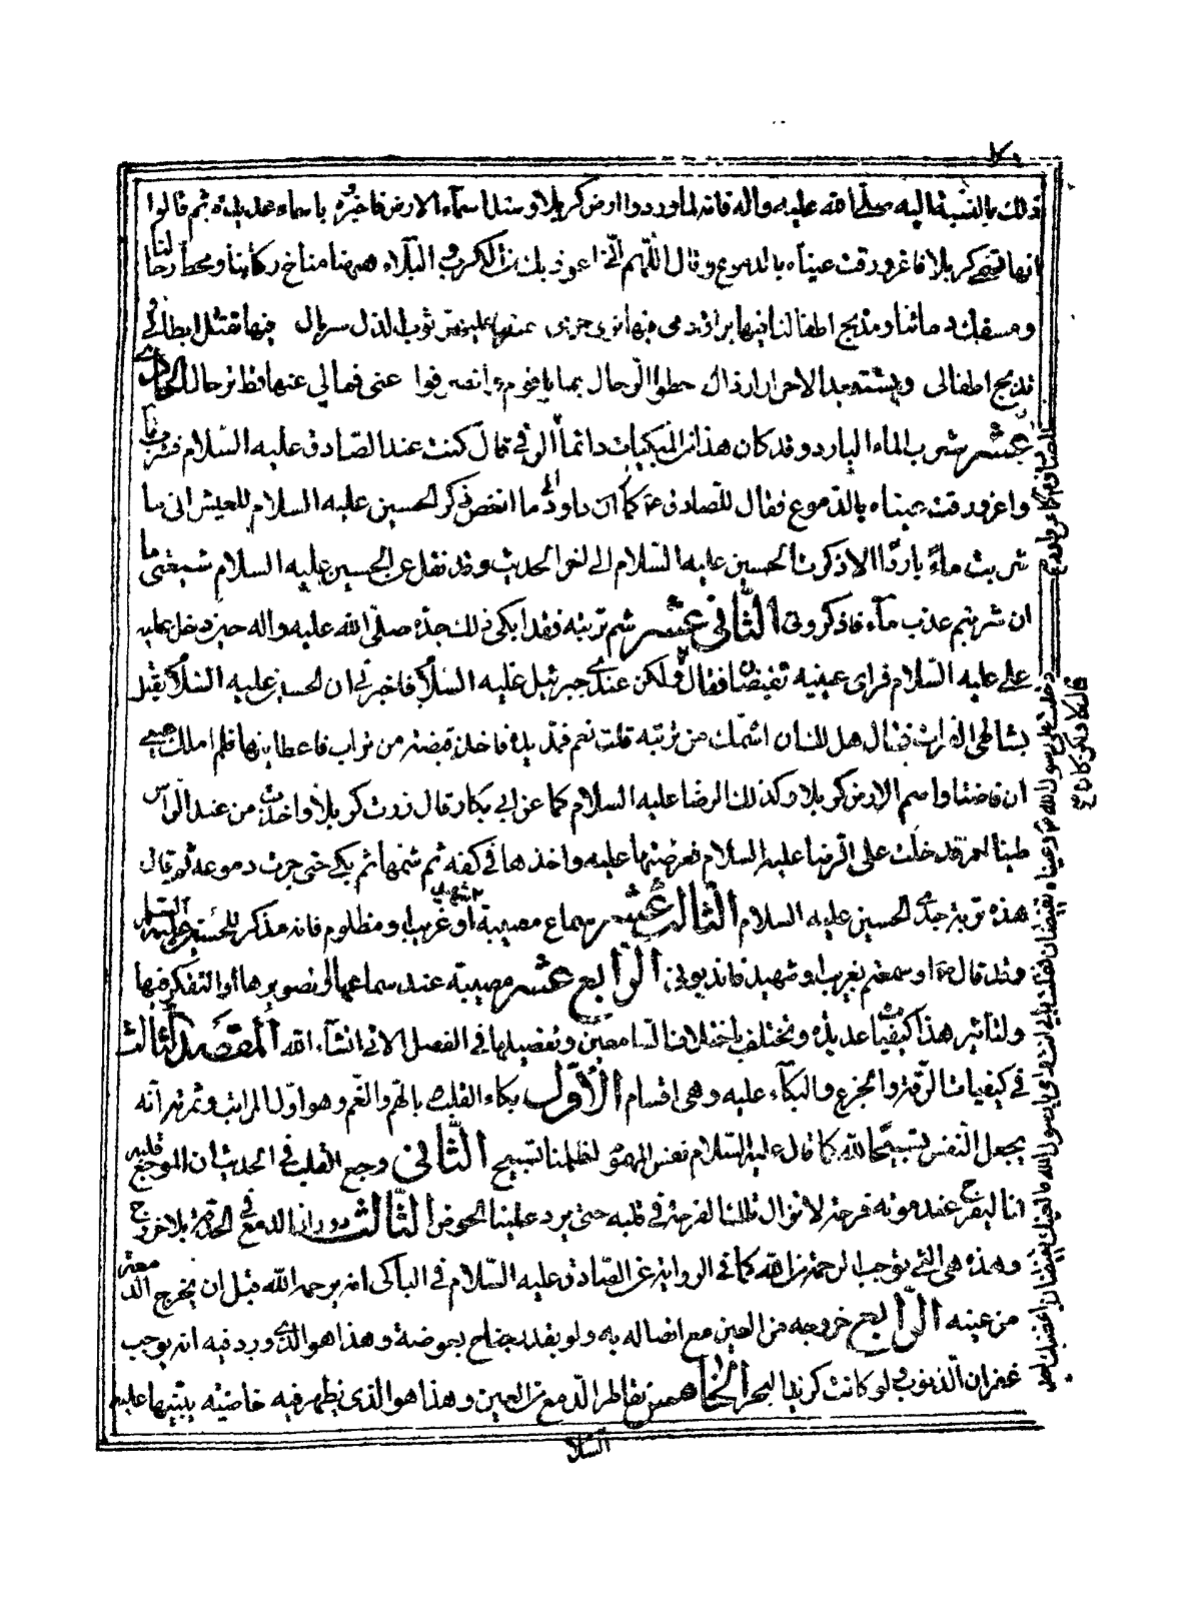 ذلك بالنسبة اليه صلى الله عليه واله فانه لما وردوا ارض كربلا وسئل اسماء الارض فاخبروه باسماء عديدة ثم قالوا
انها تسمى كربلا فاغرورقت عيناه بالدموع وقال اللهم انى اعوذ بك من الكرب والبلاء ههنا مناخ ركابنا ومحط رحالنا
ومسفك دمائنا ومذبح اطفالنا فيها يراق دمى فيها عليهن ثوب الذل سربال فيها تقتل ابطالى و
تذبح اطفالى ويستعبد الاحرار ارذال حطوا الرحال بها يا قوم وانصرفوا عنى فمالى عنها قط ترحال الحادى
عشر شرب الماء البارد وقد كان هذا من المبكيات دائما الرقى قال كنت عند الصادق عليه السلام فشرب ماء
واغرورقت عيناه بالدموع فقال للصادق ع كما ان داود الى ما انغص ذكر الحسين عليه السلام للعيش انى ما
شربت ماء باردا الا ذكرت الحسين عليه السلام الى اخر الحديث وقد نقل عن الحسين عليه السلام شيعتى ما
ان شربتم عذب ماء فاذكرونى الثانى عشر شم تربته فقد ابكى ذلك جده صلى الله عليه واله حين دخل عليه
على عليه السلام فراى عينيه تفيضا فقال ولكن عندى جبرئيل عليه السلام فاخبرنى ان الحسين عليه السلام يقتل
بشاطى الفرات فقال هل لك ان اشمك من تربته قلت نعم فمد يده فاخذ قبضة من تراب فاعطانيها فلم املك عينى
ان فاضتا واسم الارض كربلا وكذلك الرضا عليه السلام كما عن ابى بكار قال زرت كربلا واخذت من عند الراس
طينا احمر فدخلت على الرضا عليه السلام فعرضتها عليه واخذها فى كفه ثم شمها ثم بكى حتى جرت دموعه ثم قال
هذه تربة جدى الحسين عليه السلام الثالث عشر سماع مصيبة شهيد او غريب او مظلوم فانه مذكر للحسين عليه السلام
وقد قال ع او سمعتم بغريب او شهيد فاندبونى الرابع عشر مصيبته عند سماعها او تصويرها او التفكر فيها
ولتاثير هذا كيفيات عديدة وتختلف باختلاف السامعين وتفصيلها فى الفصل الاتى انشاء الله المقصد الثالث
فى كيفيات الرقة والجزع والبكاء عليه وهى اقسام الاول بكاء القلب بالهم والغم وهو اول المراتب وثمرته انه
يجعل النفس تسبيحا لله كما قال عليه السلام نفس المهموم لظلمنا تسبيح الثانى وجع القلب فى الحديث ان الموجع قلبه
لنا ليفرح عند موته فرحة لا تزال تلك الفرحة فى قلبه حتى يرد علينا الحوض الثالث دوران الدمع فى الحدقة بلا خروج
وهذه هى التى توجب الرحمة من الله كما فى الرواية عن الصادق عليه السلام فى الباكى انه يرحمه الله قبل ان يخرج الدمعة
من عينه الرابع خروجه من العين مع اتصاله به ولو بقدر جناح بعوضة وهذا هو الذى ورد فيه انه يوجب
غفران الذنوب ولو كانت كزبد البحر الخامس تقاطر الدمع من العين وهذا هو الذى يظهر فيه خاصيته يبتنيها عليه
السلام
دخلت على رسول الله ص وعيناه تفيضان فقلت بابى انت وامى يا رسول الله ما لعينك تفيضان اغضبك احد
قال لا ولكن كان ع